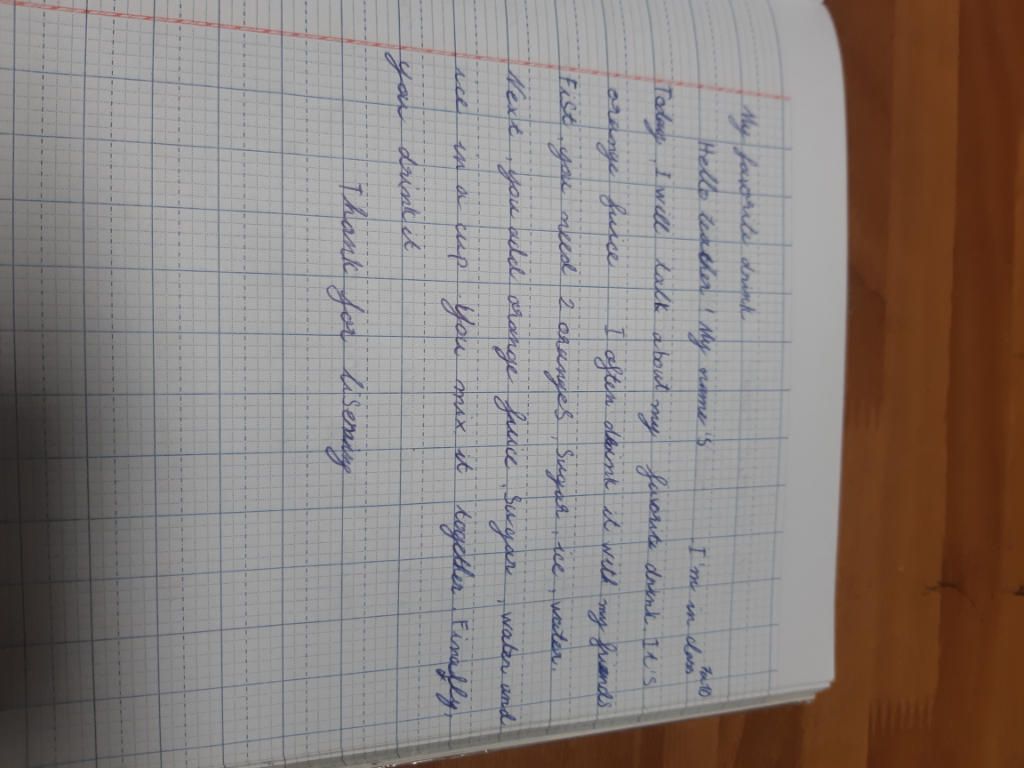 My favorite drink
Hello teacher! My name's I'm in class
Today, I will talk about my favorite drink. It's
orange juice. I often drink it with my friends
Fist, you need 2 oranges, Sugar, ice, water.
Next, you add orange juice, Sugar, water and
ice in a cup. You mix it together. Finaflly,
you drink it
Thank for lisening